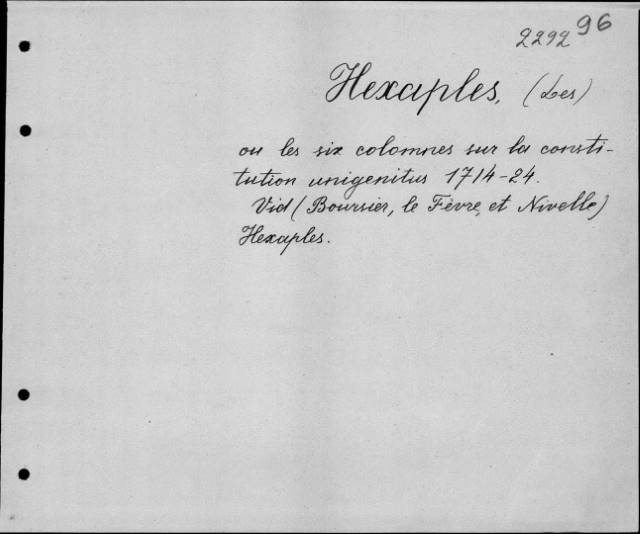 2292 96
Hexaples, (Les)
ou les six colomnes sur la consti-
tution unigenitus 1714-24.
Vid (Boursier, le Fèvre, et Nivelle)
Hexaples.